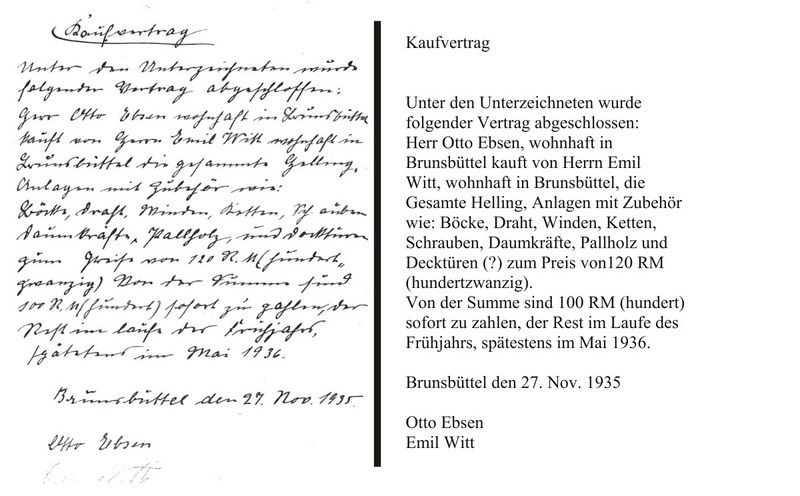 Kaufvertrag
Unter den Unterzeichneten wurde
folgender Vertrag abgeschlossen:
Herr Otto Ebsen wohnhaft in Brunsbüttel
kauft von Herrn Emil Witt wohnhaft in
Brunsbüttel die gesammte Helling,
Anlagen mit Zubehör wie:
Böcke, Draht, Winden, Ketten, Schrauben
Daumkräfte, Pallholz, und Docktüren
zum Preise von 120 R.M (hundert-
zwanzig) Von der Summe sind
100 R.M (hundert) sofort zu zahlen, der
Rest im laufe des Frühjahrs,
spätetens im Mai 1936.
Brunsbüttel den 27. Nov. 1935.
Otto Ebsen
Kaufvertrag
Unter den Unterzeichneten wurde
folgender Vertrag abgeschlossen:
Herr Otto Ebsen, wohnhaft in
Brunsbüttel kauft von Herrn Emil
Witt, wohnhaft in Brunsbüttel, die
Gesamte Helling, Anlagen mit Zubehör
wie: Böcke, Draht, Winden, Ketten,
Schrauben, Daumkräfte, Pallholz und
Decktüren (?) zum Preis von120 RM
(hundertzwanzig).
Von der Summe sind 100 RM (hundert)
sofort zu zahlen, der Rest im Laufe des
Frühjahrs, spätestens im Mai 1936.
Brunsbüttel den 27. Nov. 1935
Otto Ebsen
Emil Witt